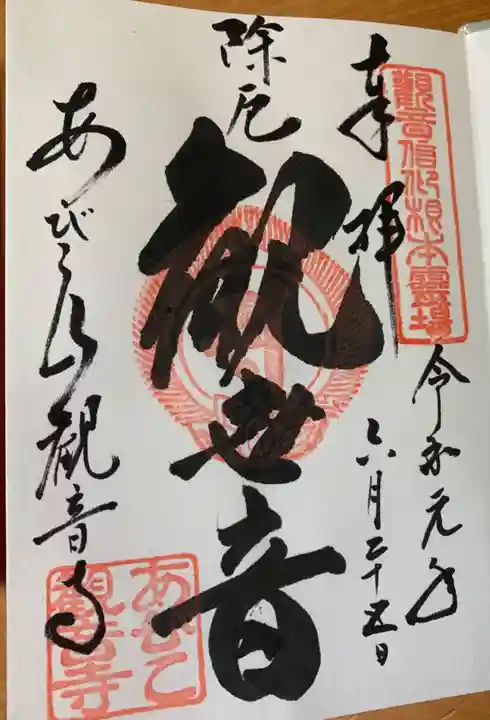 觀音信仰根本靈場
奉拝
令和元年
六月二十五日
除厄
観世音
あびこ山観音寺
あびこ
観音寺